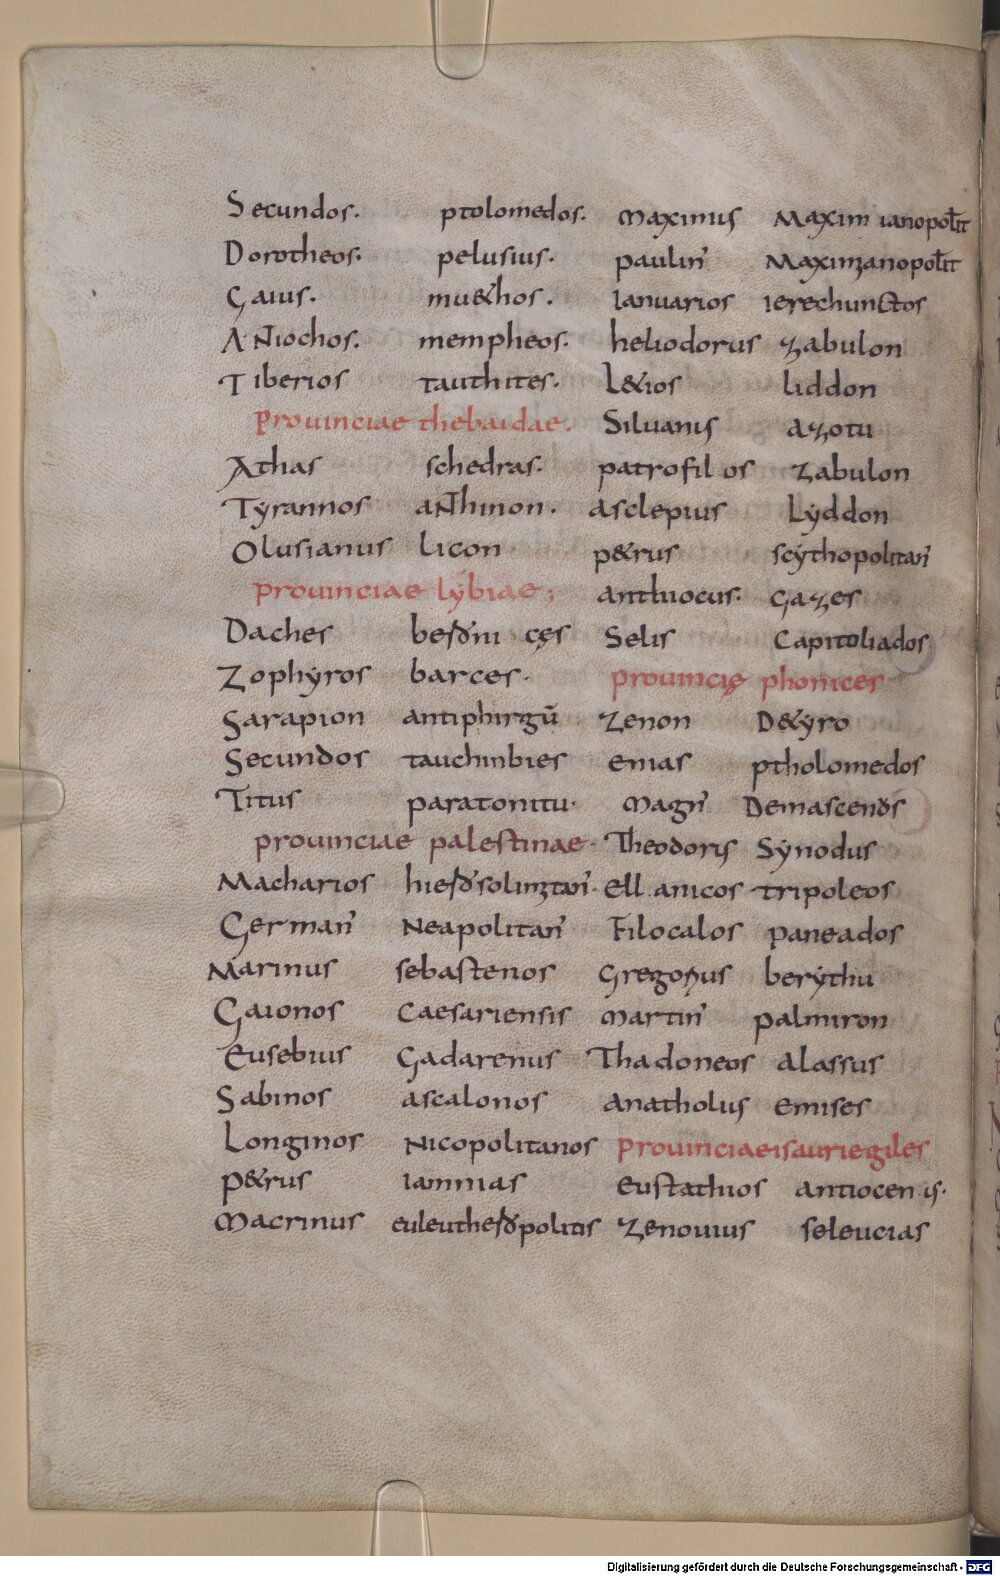 Secundos. ptolomedos.
Dorotheos. pelusius.
Gaius. mu&hos.
ANtiochos. mempheos.
Tiberios tauthites.
Prouinciae thebaidae.
Athas schedras.
Tyrannos aNthinon.
Olusianus licon
prouinciae lybiae;
Daches
Zophyros barces.
Sarapion antiphirgū
Secundos tauchinbies
Titus paratonitu.
prouinciae palestinae.
Macharios
German̄ Neapolitan̄
Marinus sebastenos
Gaionos Caesariensis
Eusebius Gadarenus
Sabinos ascalonos
Longinos Nicopolitanos
P&rus iamnias
Macrinus
Maximus Maximianopolit̄
paulin̄ Maximianopolit̄
Ianuarios ierechunctos
heliodorus zabulon
L&ios liddon
Siluanis azotu
patrofilos zabulon
asclepius Lyddon
p&rus scythopolitan̄
anthiocus. Gazes
Selis Capitoliados
prouincię phonices
Zenon D&yro
enias ptholomedos
Magn̄
Theodoris Synodus
Ellanicos tripoleos
Filocalos paneados
Gregorius berythu
Martin̄ palmiron
Thadoneos alassus
anatholus emises
Prouinciaeisauriegiles
eustathios antiocenis.
Zenouius seleucias
Digitalisierung gefördert durch die Deutsche Forschungsgemeinschaft - DFG